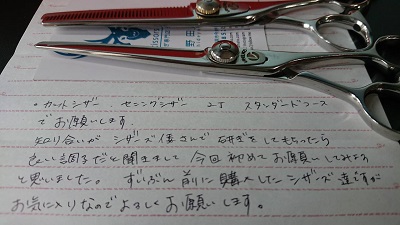 ・カットシザー、セニングシザー 2丁 スタンダードコース
でお願いします。
知り合いが シザーズ倭さんで 研ぎをしてもらったら
良い調子だと聞きまして 今回初めてお願いしてみよう
と思いました。ずいぶん前に購入したシザーズ達ですが
お気に入りなのでよろしくお願いします。